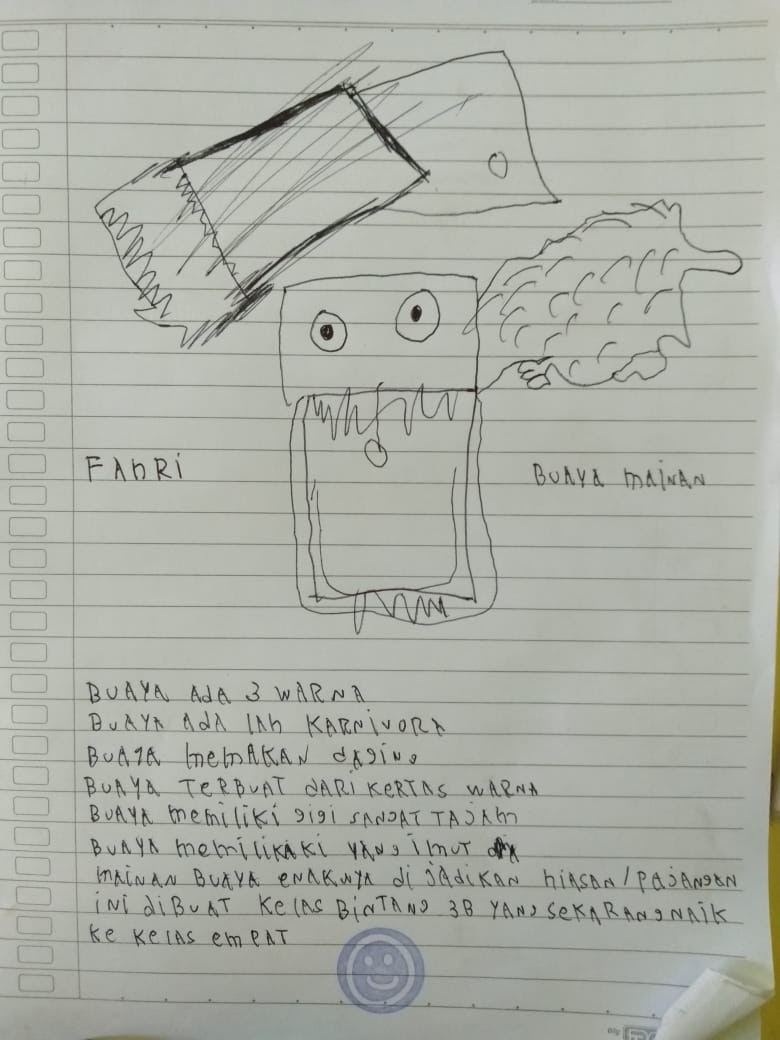 FAhRi
BUAYA mAiNAN
BUAYA AdA 3 WARNA
BUAYA AdA lAh KARNIVORA
BUAYA memAKAN dAgiNg
BUAYA TERBUAT dARi KERTAS WARNA
BUAYA memiliKi gigi SANgAT TAJAm
BUAYA memiliKAKi YANg imUT
mAiNAN BUAYA eNAKNYA di JAdiKAN hiASAN/PAJANgAN
iNi diBUAT KelAS BiNTANg 3B YANg SeKARANgNAiK
Ke KelAS emPAT